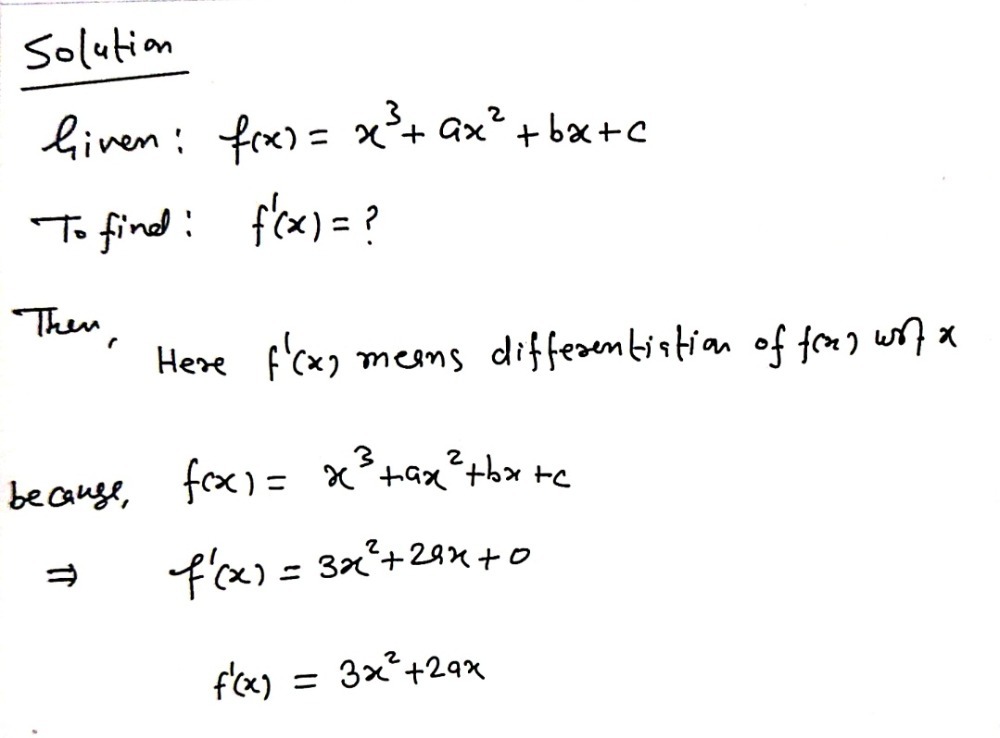 Solution
Given: f(x) = x³ + ax² + bx + c
To find: f'(x) = ?
Then,
Here f'(x) means differentiation of f(x) wrt x
because, f(x) = x³ + ax² + bx + c
⇒ f'(x) = 3x² + 2ax + 0
f'(x) = 3x² + 2ax